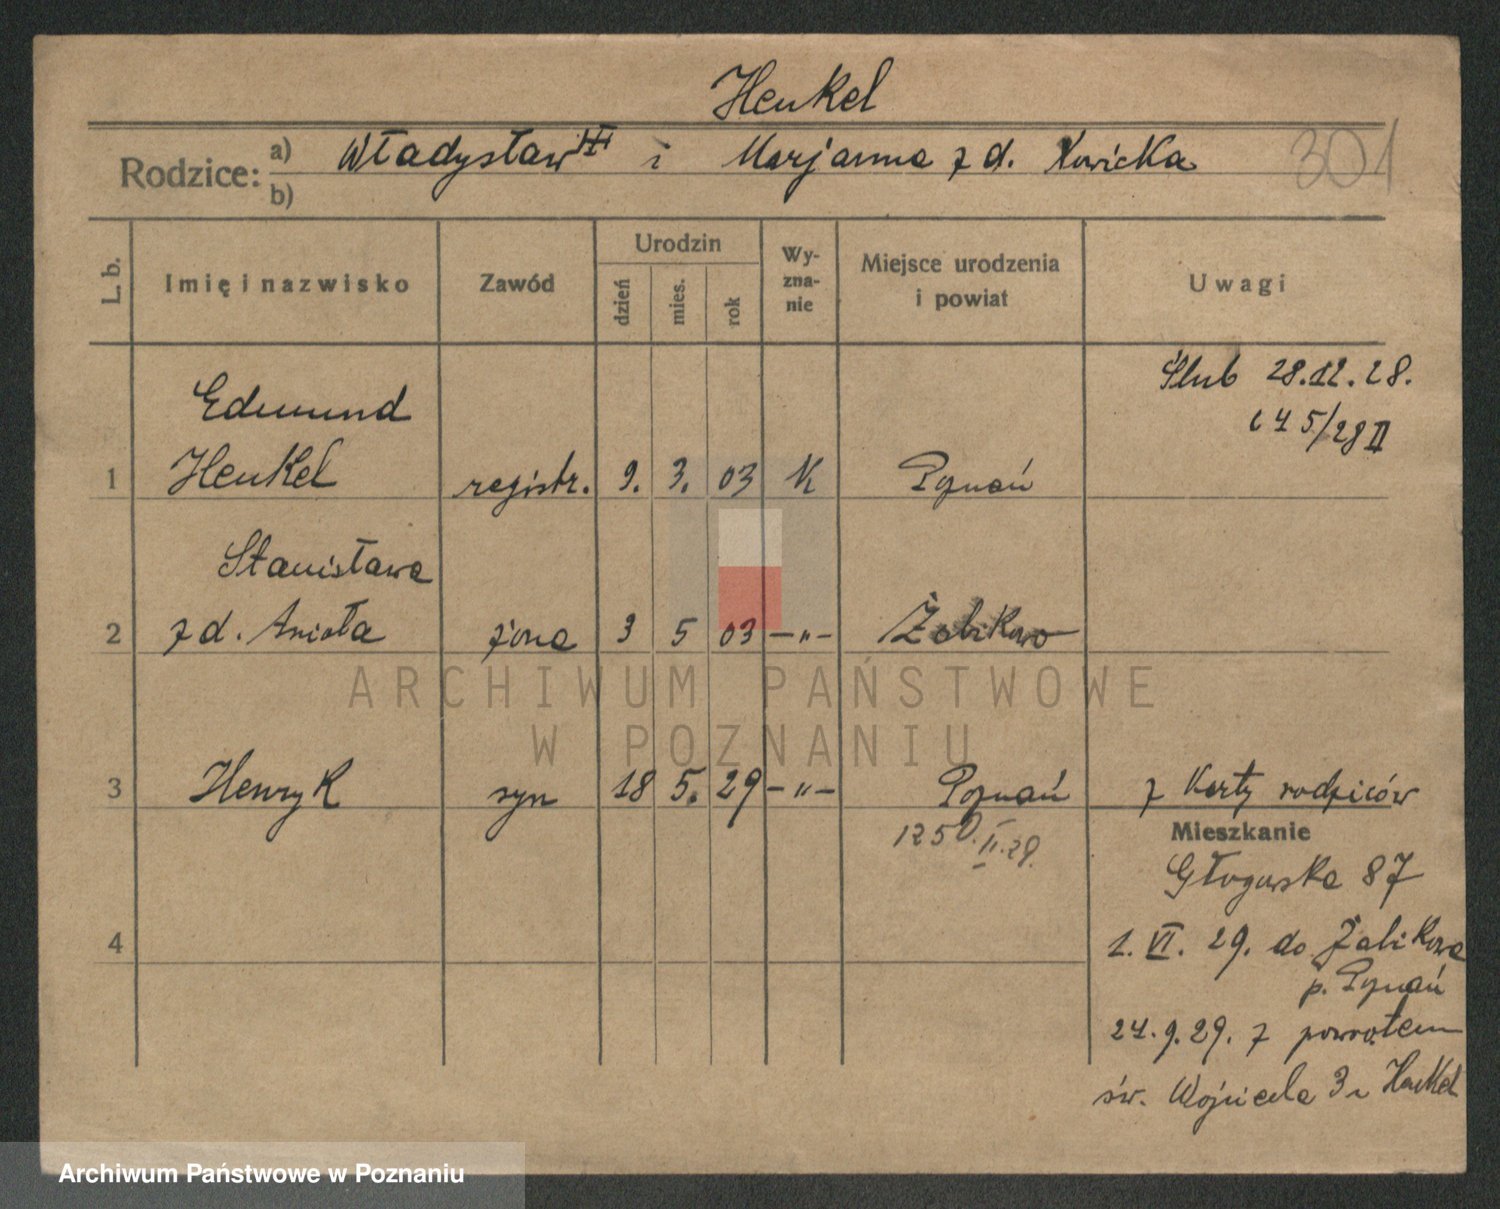 Henkel
Rodzice: a) Władysław i Marjanna z d. Nowicka 301
b)
L. b. Imię i nazwisko Zawód Urodzin dzień mies. rok Wy-zna-nie Miejsce urodzenia i powiat Uwagi
Ślub 28.12.28.
Edmund
1 Henkel registr. 9. 3. 03 K Poznań
Stanisława
2 z d. Anioła żona 3 5 03 —"— Żabikowo
ARCHIWUM PAŃSTWOWE
W POZNANIU
3 Henryk syn 18 5. 29 —"— Poznań z Karty rodziców
1250. II. 29.
Mieszkanie
Głogowska 87
4
1. VI. 29. do Żabikowa
p. Poznań
24.9.29. z powrotem
św. Wojciecha 3 u Henkel
Archiwum Państwowe w Poznaniu